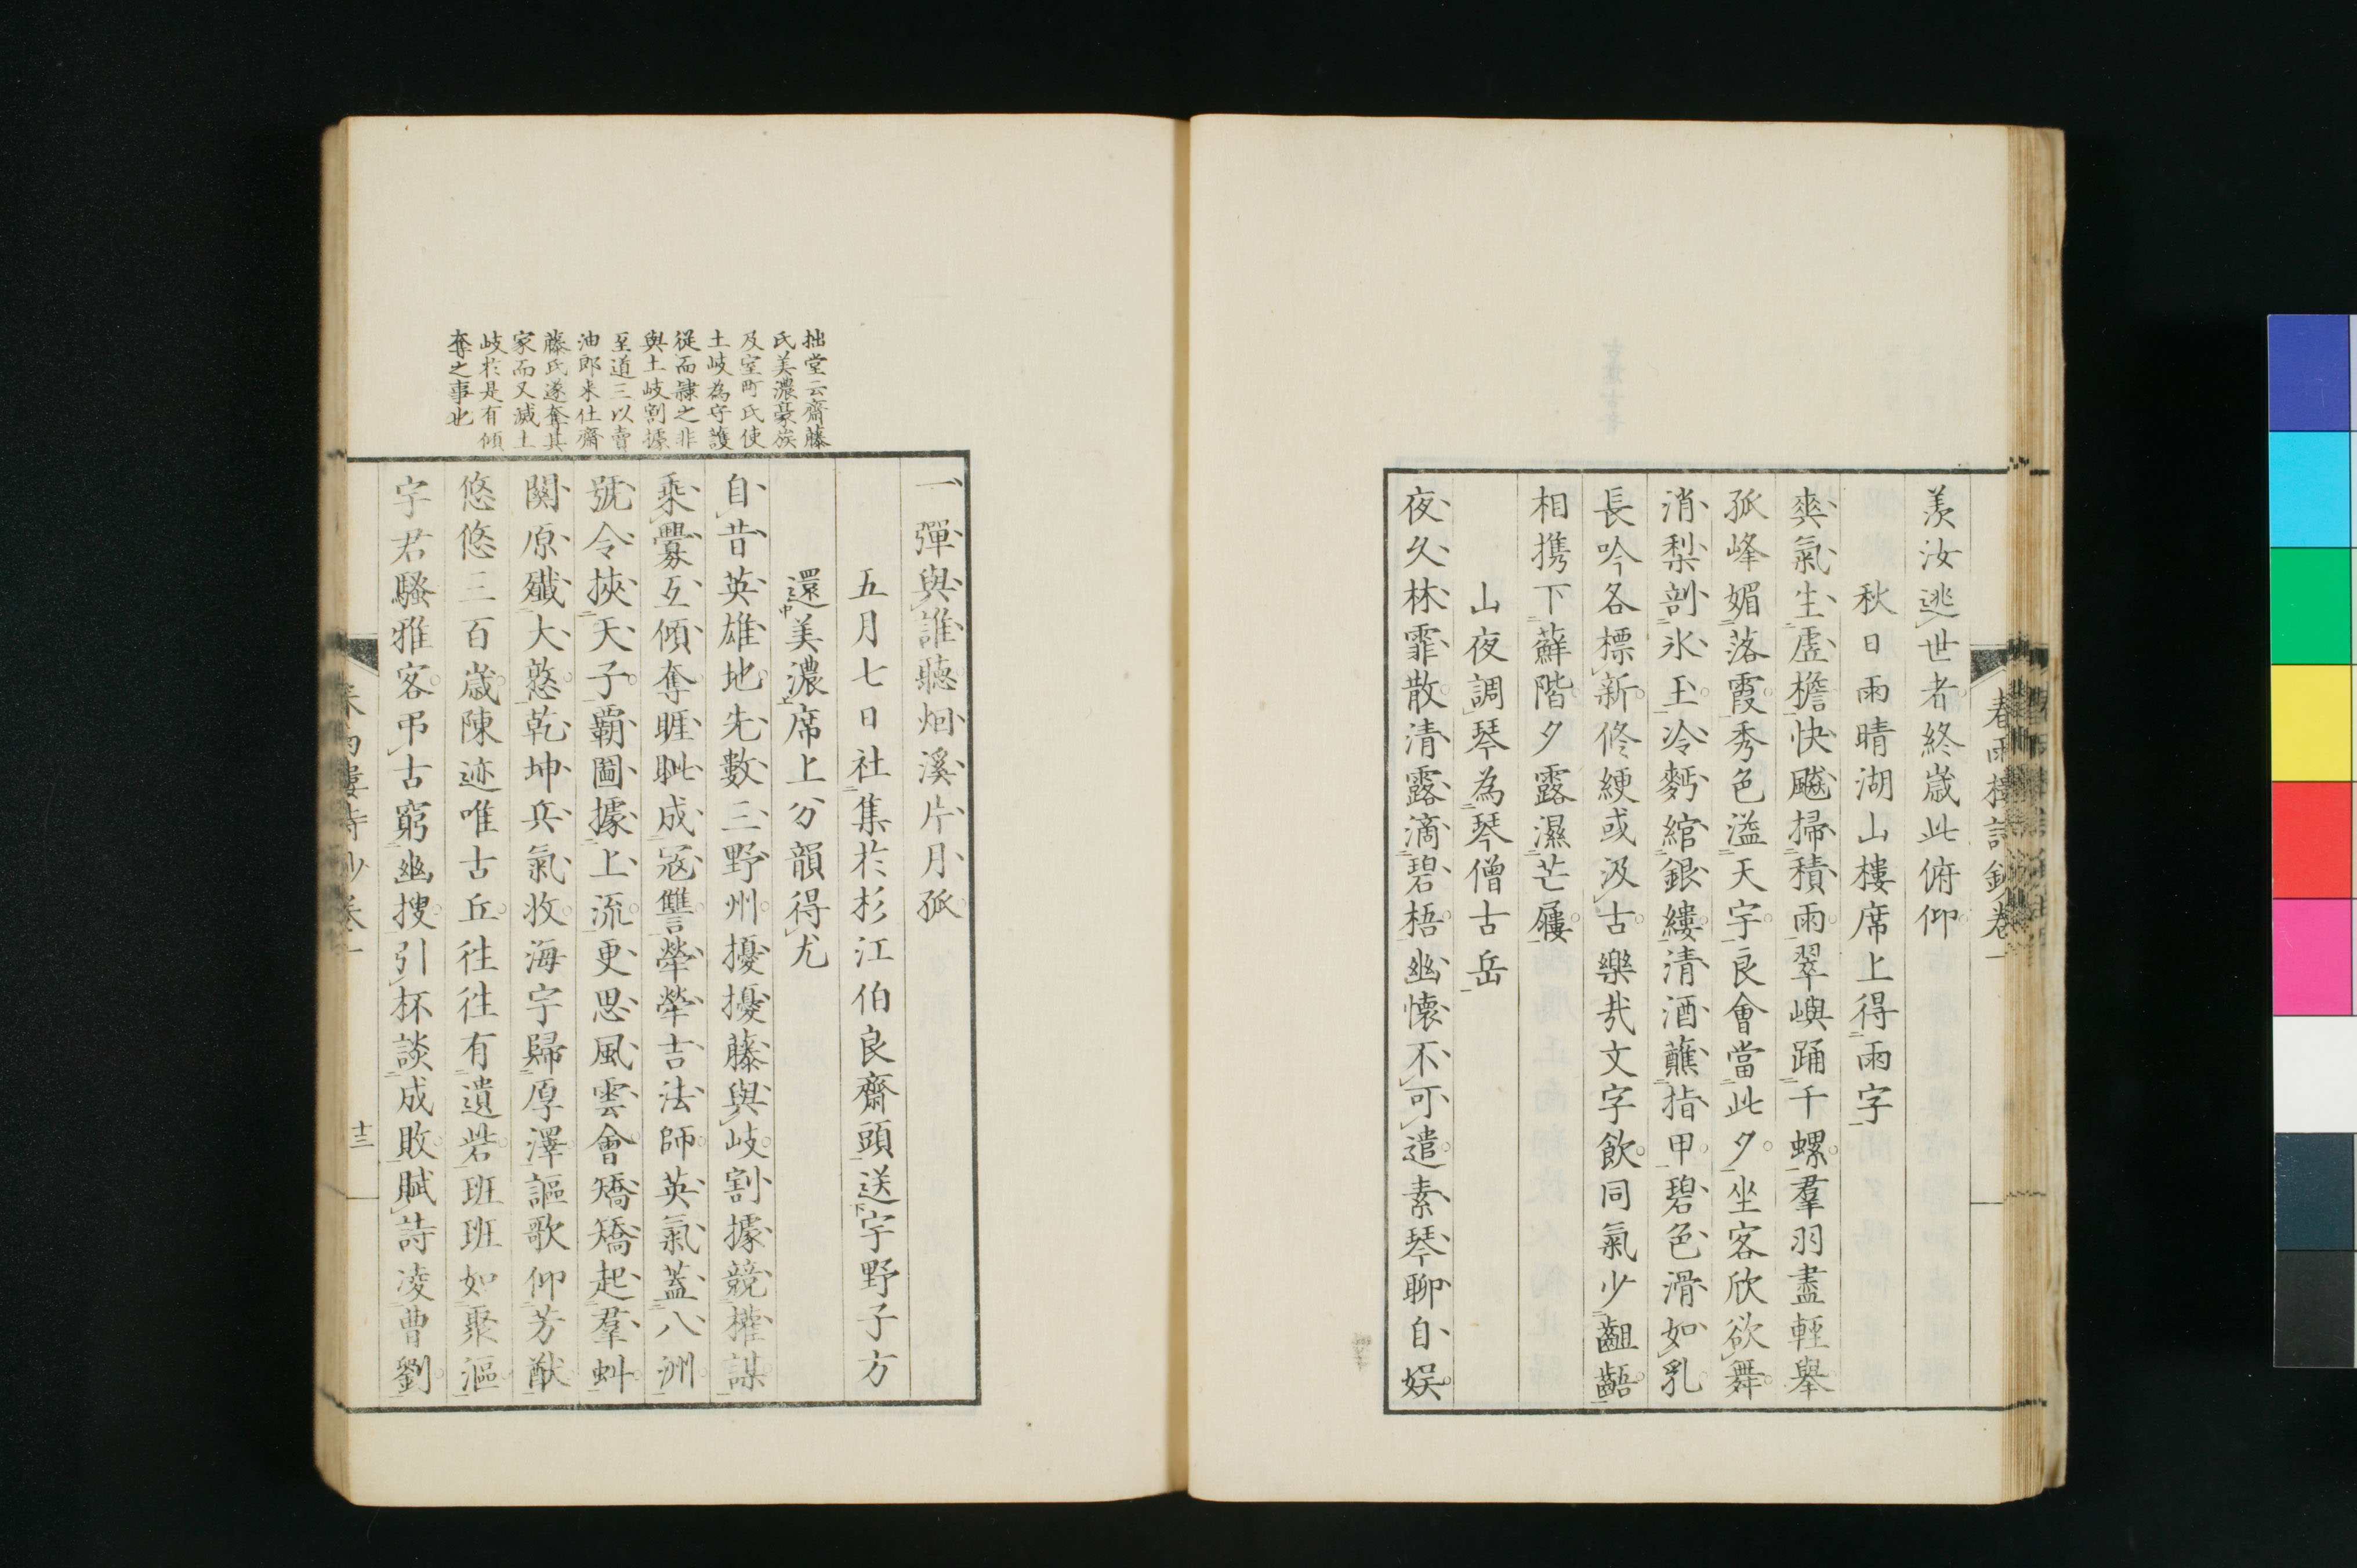 春雨樓詩鈔卷一
羨汝逃世者終歳此俯仰
秋日雨晴湖山樓席上得雨字
爽氣生虚檐快飈掃積雨翠嶼踊千螺羣羽盡輕舉
孤峰媚落霞秀色溢天宇良會當此夕坐客欣欲舞
消梨剖氷玉冷麪綰銀縷清酒蘸指甲碧色滑如乳
長吟各標新修綆或汲古樂哉文字飲同氣少齟齬
相携下蘚階夕露濕芒屨
山夜調琴為琴僧古岳
夜久林霏散清露滴碧梧幽懷不可遣素琴聊自娯
一彈與誰聽烟溪片月孤
五月七日社集於杉江伯良齋頭送宇野子方
還美濃席上分韻得尤
自昔英雄地先數三野州擾擾藤與岐割據競權謀
乘釁互傾奪睚眦成寇讐犖犖吉法師英氣蓋八洲
號令挾天子覇圖據上流更思風雲會矯矯起羣虯
關原殲大憝乾坤兵氣收海宇歸厚澤謳歌仰芳猷
悠悠三百歳陳迹唯古丘往往有遺砦班班如聚漚
宇君騷雅客弔古窮幽搜引杯談成敗賦詩凌曹劉
拙堂云齋藤
氏美濃豪族
及室町氏使
土岐為守護
從而隷之非
與土岐割據
至道三以賣
油郎来仕齋
藤氏遂奪其
家而又滅土
岐於是有傾
奪之事也
春雨樓詩鈔卷一
十三